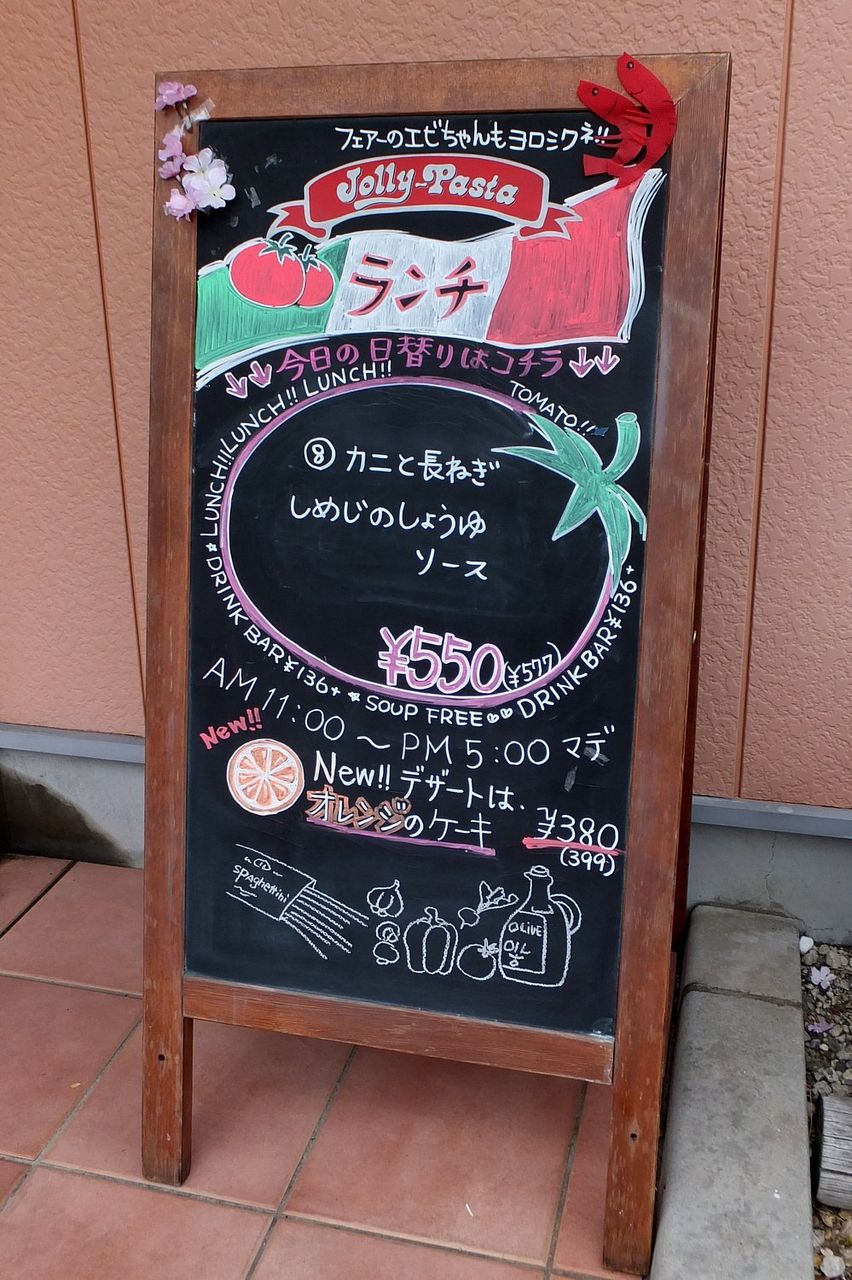 フェアーのエビちゃんもヨロシクネ!!
Jolly-Pasta
ランチ
今日の日替りはコチラ
LUNCH!! LUNCH!! LUNCH!!
TOMATO!!
⑧ カニと長ねぎ
しめじのしょうゆ
ソース
¥550(¥577)
DRINK BAR ¥136+
SOUP FREE
DRINK BAR ¥136+
AM 11:00 ~ PM 5:00 マデ
New!!
New!! デザートは、
オレンジのケーキ ¥380
(399)
spaghettini
OLIVE
OIL